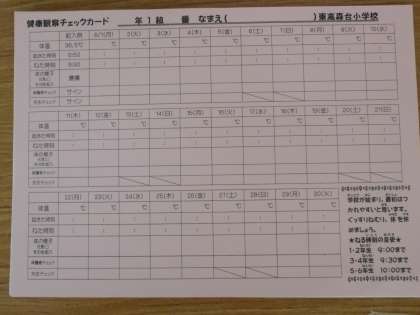 健康観察チェックカード　年1組　番 なまえ(　)東高森台小学校
記入例 6/1(月) 2(火) 3(水) 4(木) 5(金) 6(土) 7(日) 8(月) 9(火) 10(水)
体温 36.5℃ ℃ ℃ ℃ ℃ ℃ ℃ ℃ ℃ ℃ ℃
おきた時刻 : : : : : : : : : :
ねた時刻 : : : : : : : : : :
体の様子
保護者チェック サイン
先生チェック サイン
11(木) 12(金) 13(土) 14(日) 15(月) 16(火) 17(水) 18(木) 19(金) 20(土) 21(日)
体温 ℃ ℃ ℃ ℃ ℃ ℃ ℃ ℃ ℃ ℃ ℃
おきた時刻 : : : : : : : : : : :
ねた時刻 : : : : : : : : : : :
体の様子
保護者チェック
先生チェック
22(月) 23(火) 24(水) 25(木) 26(金) 27(土) 28(日) 29(月) 30(火)
体温 ℃ ℃ ℃ ℃ ℃ ℃ ℃ ℃ ℃
おきた時刻 : : : : : : : : :
ねた時刻 : : : : : : : : :
体の様子
保護者チェック
先生チェック
学校が始まり、最初はつ
かれやすいと思います。
ぐっすりねむり、体を休
めましょう。
★ねる時刻の目安★
1・2年生 9:00まで
3・4年生 9:30まで
5・6年生 10:00まで